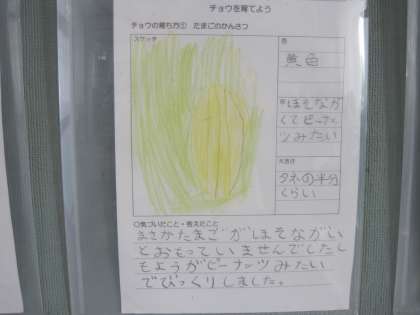 チョウを育てよう
チョウの育ち方① たまごのかんさつ
スケッチ
色
黄色
形
ほそなが
くてピーナッ
ツみたい
大きさ
タネの半分
くらい
○気づいたこと・考えたこと
まさかたまごがほそながい
とおもっていませんでしたし
もようがピーナッツみたい
でびっくりしました。